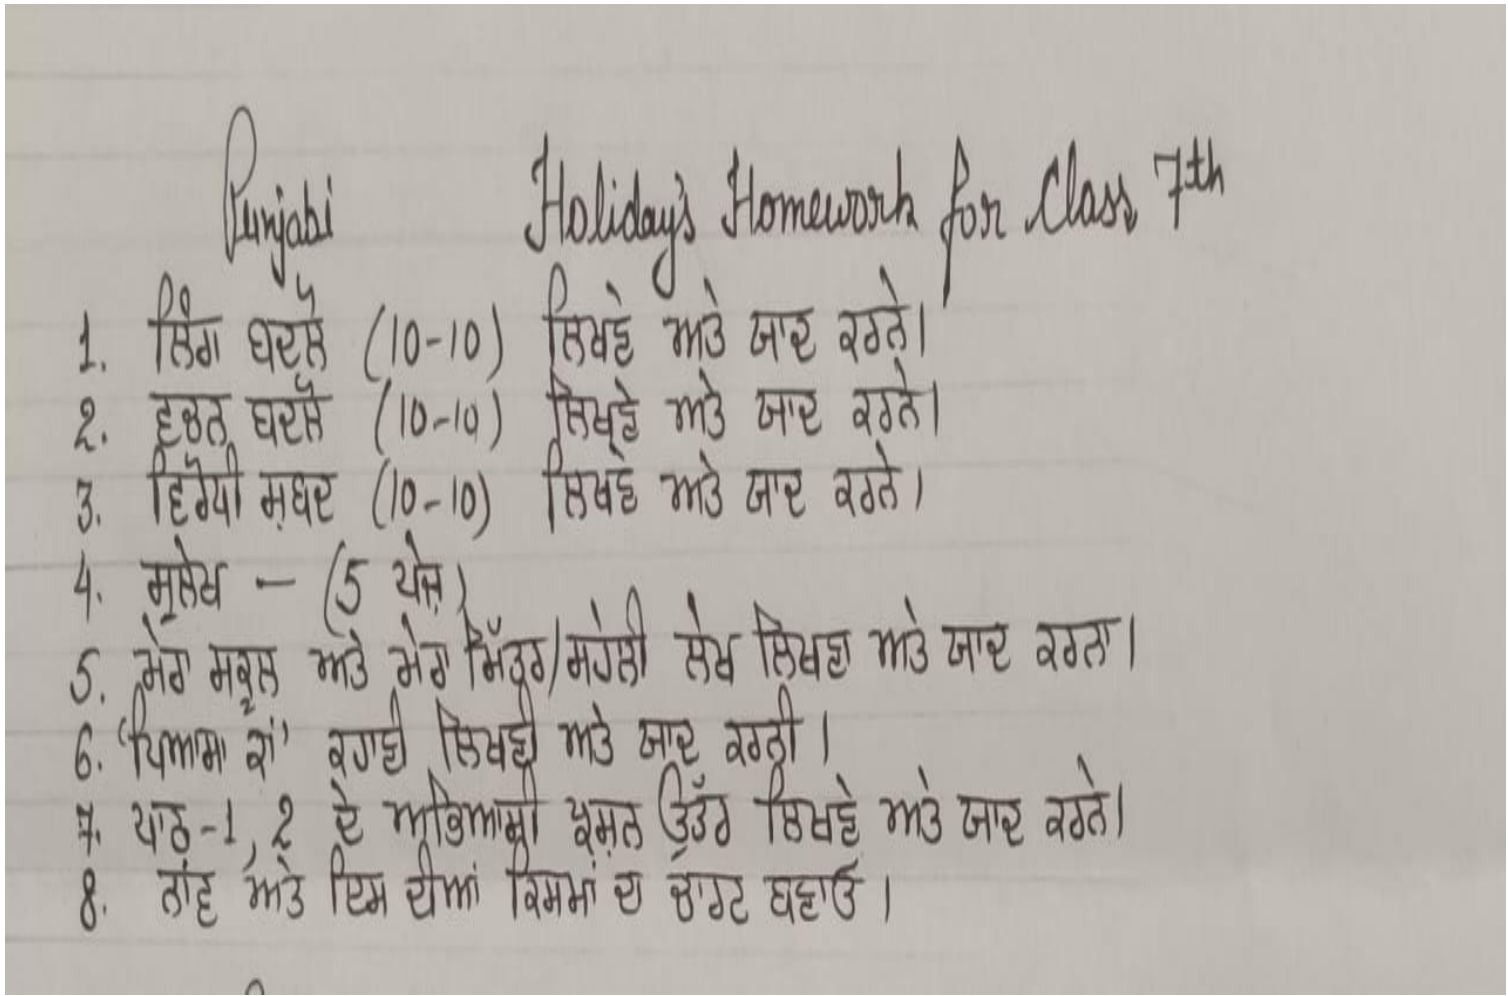 Punjabi Holiday's Homework for Class 7th
1. ਲਿੰਗ ਬਦਲੋ (10-10) ਲਿਖਣੇ ਅਤੇ ਯਾਦ ਕਰਨੇ।
2. ਵਚਨ ਬਦਲੋ (10-10) ਲਿਖਣੇ ਅਤੇ ਯਾਦ ਕਰਨੇ।
3. ਵਿਰੋਧੀ ਸ਼ਬਦ (10-10) ਲਿਖਣੇ ਅਤੇ ਯਾਦ ਕਰਨੇ।
4. ਸੁਲੇਖ - (5 ਪੇਜ਼)
5. ਮੇਰਾ ਸਕੂਲ ਅਤੇ ਮੇਰਾ ਮਿੱਤਰ/ਸਹੇਲੀ ਲੇਖ ਲਿਖਣਾ ਅਤੇ ਯਾਦ ਕਰਨਾ।
6. 'ਪਿਆਸਾ ਕਾਂ' ਕਹਾਣੀ ਲਿਖਣੀ ਅਤੇ ਯਾਦ ਕਰਨੀ।
7. ਪਾਠ-1, 2 ਦੇ ਅਭਿਆਸੀ ਪ੍ਰਸ਼ਨ ਉੱਤਰ ਲਿਖਣੇ ਅਤੇ ਯਾਦ ਕਰਨੇ।
8. ਨਾਂਵ ਅਤੇ ਇਸ ਦੀਆਂ ਕਿਸਮਾਂ ਦਾ ਚਾਰਟ ਬਣਾਓ।